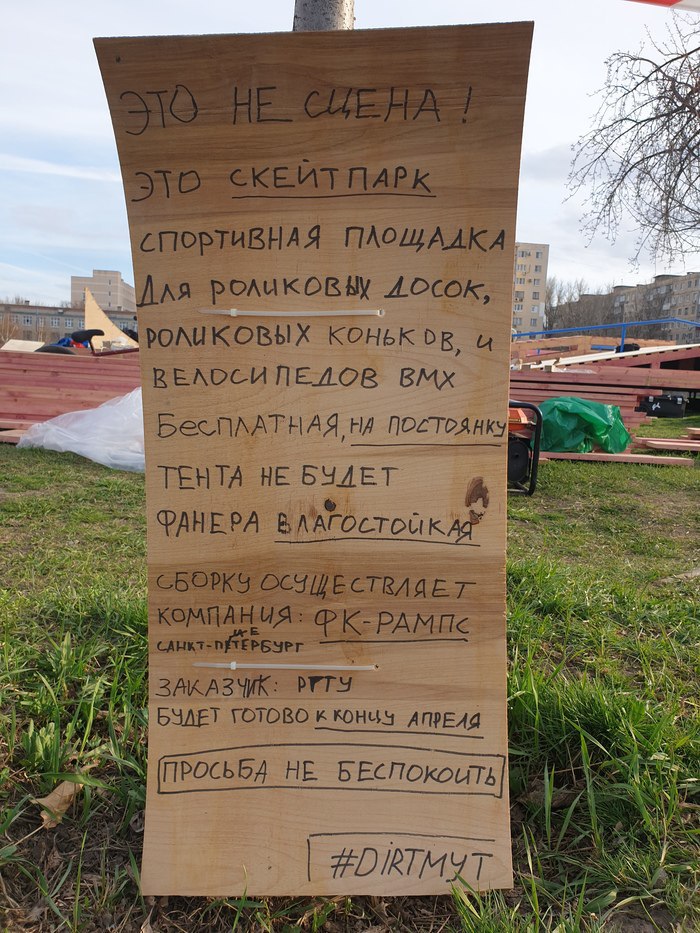 ЭТО НЕ СЦЕНА!
ЭТО СКЕЙТПАРК
СПОРТИВНАЯ ПЛОЩАДКА
Для РОЛИКОВЫХ ДОСОК,
РОЛИКОВЫХ КОНЬКОВ, и
ВЕЛОСИПЕДОВ BMX
Бесплатная, на постоянку
ТЕНТА НЕ БУДЕТ
ФАНЕРА ВЛАГОСТОЙКАЯ
СБОРКУ ОСУЩЕСТВЛЯЕТ
КОМПАНИЯ: ФК-РАМПС
САНКТ-ПЕТЕРБУРГ
ЗАКАЗЧИК:
БУДЕТ ГОТОВО К КОНЦУ АПРЕЛЯ
ПРОСЬБА НЕ БЕСПОКОИТЬ
#DIRTMYT